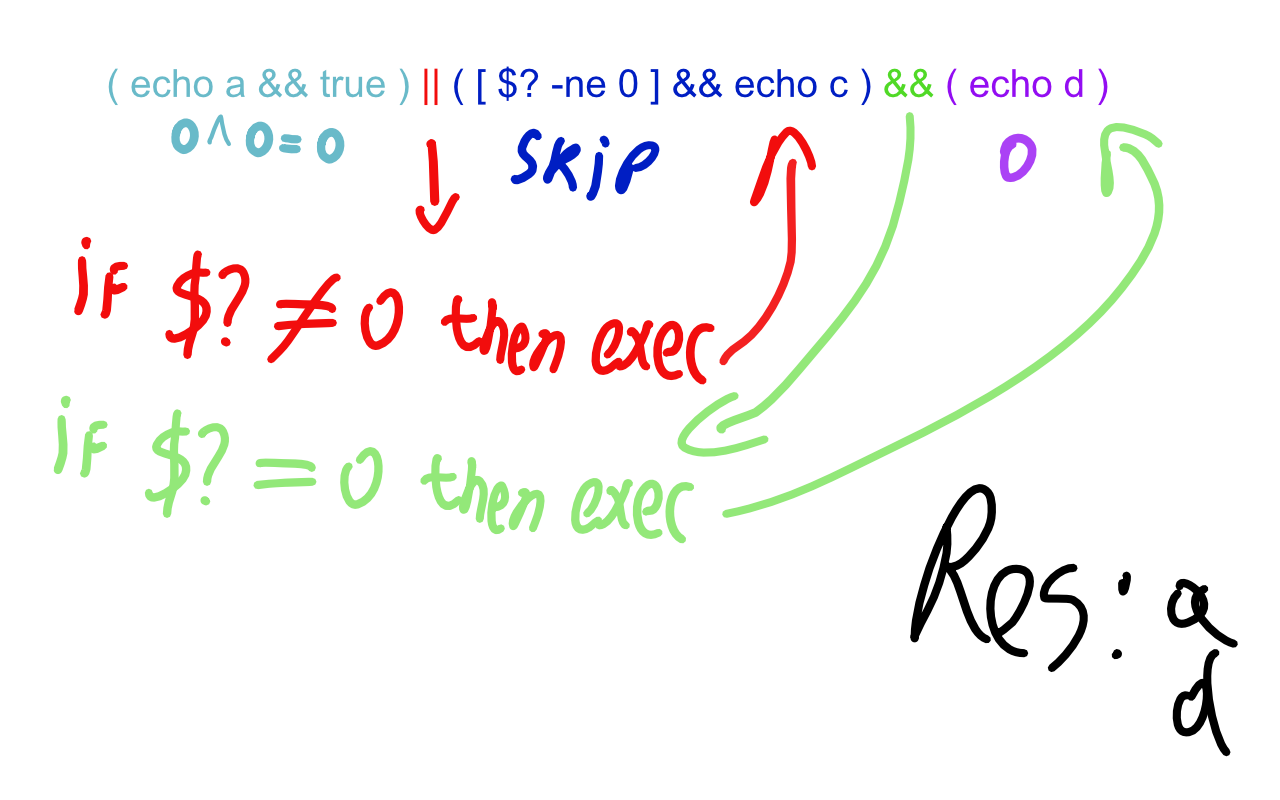 ( echo a && true ) || ( [ $? -ne 0 ] && echo c ) && ( echo d )
0 ^ 0 = 0 skip 0
if $? ≠ 0 then exec
if $? = 0 then exec
Res: a
d